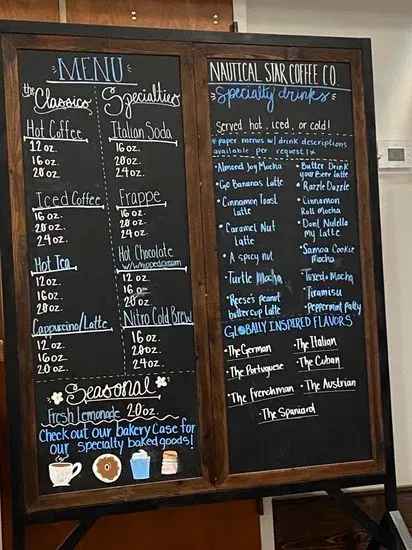 MENU
the Classics
Hot Coffee
12 oz.
16 oz.
20 oz.
Iced Coffee
16 oz.
20 oz.
24 oz.
Hot Tea
12 oz.
16 oz.
20 oz.
Cappuccino/Latte
12 oz.
16 oz.
20 oz.
Specialties
Italian Soda
16 oz.
20 oz.
24 oz.
Frappe
16 oz.
20 oz.
24 oz.
Hot Chocolate
w/ whipped cream
12 oz.
16 oz.
20 oz.
Nitro Cold Brew
16 oz.
20 oz.
24 oz.
Seasonal
Fresh Lemonade 20 oz.
Check out our bakery case for
our specialty baked goods!
NAUTICAL STAR COFFEE CO.
Specialty drinks
Served hot, iced, or cold!
*paper menus w/ drink descriptions
available per request!*
•Almond Joy Mocha
•Go Bananas Latte
•Cinnamon Toast
Latte
•Caramel Nut
latte
•A spicy nut
•Turtle Mocha
•Reese's peanut
buttercup Latte
•Butter Drink
your Beer latte
•Razzle Dazzle
•Cinnamon
Roll Mocha
•Don't Nutella
My latte
•Samoa Cookie
Mocha
•Tuxedo Mocha
•Tiramisu
•Peppermint Patty
GLOBALLY INSPIRED FLAVORS
•The German
•The Portuguese
•The Frenchman
•The Italian
•The Cuban
•The Austrian
•The Spaniard